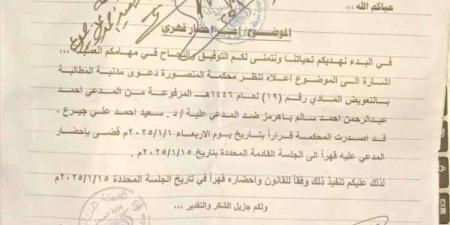 حياكم الله ...
الموضوع/ أمر إحضار قهري
في البدء نهديكم تحياتنا ونتمنى لكم التوفيق والنجاح في مهامكم العملية
اشارة الى الموضوع اعلاه تنظر محكمة المنصورة دعوى مدنية المطالبة
بالتعويض المادي رقم (١٩) لعام ١٤٤٦هـ المرفوعة من المدعي احمد
عبدالرحمن احمد سالم باهرمز ضد المدعى علية /د . سعيد احمد علي جيرع .
قد اصدرت المحكمة قراراً بتاريخ يوم الاربعاء ٢٠٢٥/١/١م قضى بإحضار
المدعي عليه قهراً الى الجلسة القادمة المحددة بتاريخ ٢٠٢٥/١/١٥م .
لذلك عليكم تنفيذ ذلك وفقاً للقانون وإحضاره قهراً في تاريخ الجلسة المحددة ٢٠٢٥/١/١٥م
ولكم جزيل الشكر والتقدير ...